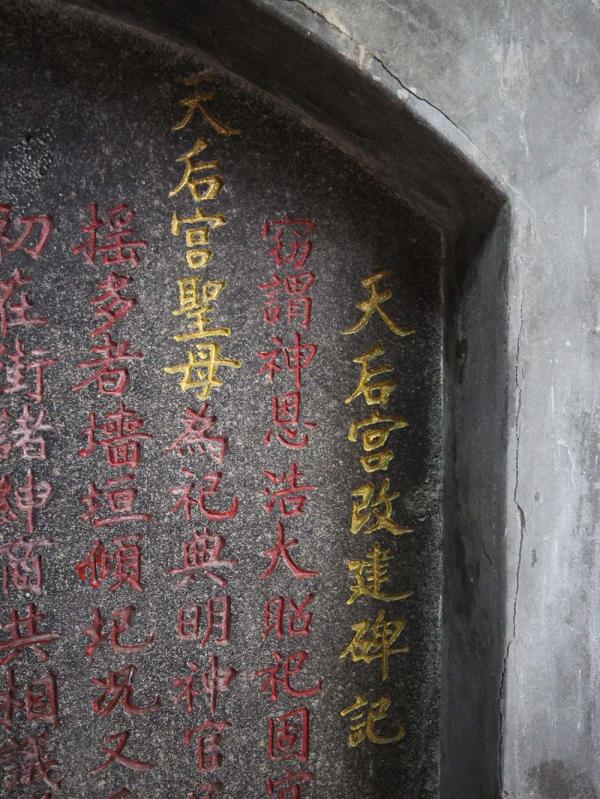 天后宮改建碑記
竊謂神恩浩大貽祀固宜
天后宮聖母為祀典明神官
搖多者墻垣傾圯況又
初在街諸紳商共相議